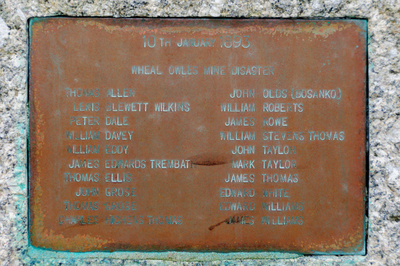 10TH JANUARY 1893
WHEAL OWLES MINE DISASTER
THOMAS ALLEN
LEWIS BLEWETT WILKINS
PETER DALE
WILLIAM DAVEY
WILLIAM EDDY
JAMES EDWARDS TREMBATH
THOMAS ELLIS
JOHN GROSE
THOMAS
JOHN OLDS (BOSANKO)
WILLIAM ROBERTS
JAMES ROWE
WILLIAM STEVENS THOMAS
JOHN TAYLOR
MARK TAYLOR
JAMES THOMAS
EDWARD WHITE
EDWARD WILLIAMS
JAMES WILLIAMS